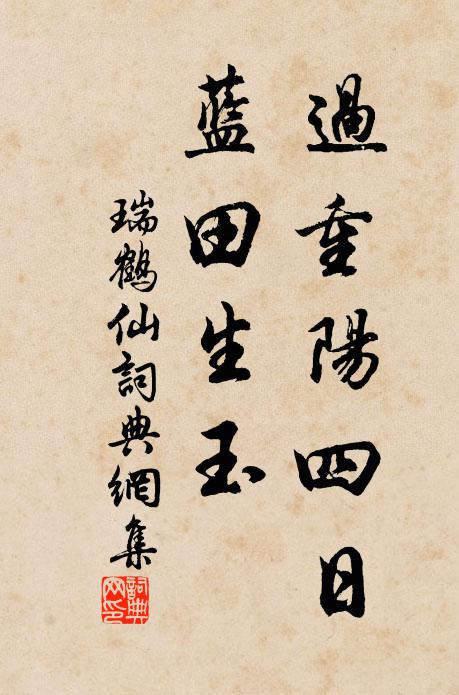 過重陽四日
藍田生玉
瑞鶴仙詞典網集
詞典網印